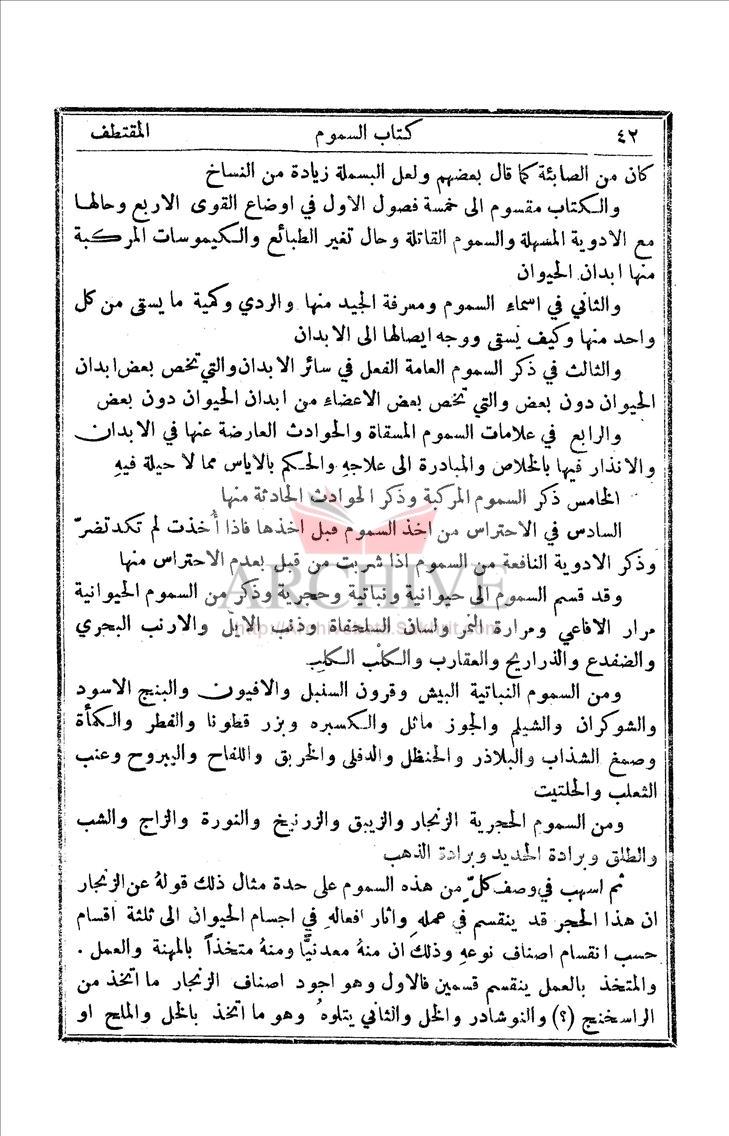 ٤٢ كتاب السموم المقتطف
كان من الصابئة كما قال بعضهم ولعل البسملة زيادة من النساخ
والكتاب مقسوم الى خمسة فصول الاول في اوضاع القوى الاربع وحالها
مع الادوية المسهلة والسموم القاتلة وحال تغير الطبائع والكيموسات المركبة
منها ابدان الحيوان
والثاني في اسماء السموم ومعرفة الجيد منها والردي وكمية ما يسقى من كل
واحد منها وكيف يُسقى ووجه ايصالها الى الابدان
والثالث في ذكر السموم العامة الفعل في سائر الابدان والتي تخص بعض ابدان
الحيوان دون بعض والتي تخص بعض الاعضاء من ابدان الحيوان دون بعض
والرابع في علامات السموم المسقاة والحوادث العارضة عنها في الابدان
والانذار فيها بالخلاص والمبادرة الى علاجهِ والحكم بالاياس مما لا حيلة فيهِ
الخامس ذكر السموم المركبة وذكر الحوادث الحادثة منها
السادس في الاحتراس من اخذ السموم قبل اخذها فاذا أُخذت لم تكد تضرّ
وذكر الادوية النافعة من السموم اذا شربت من قبل بعدم الاحتراس منها
وقد قسم السموم الى حيوانية ونباتية وحجرية وذكر من السموم الحيوانية
مرار الافاعي ومرارة النمر ولسان السلحفاة وذنب الايّل والارنب البحري
والضفدع والذراريح والعقارب والكلْب الكلِب
ومن السموم النباتية البيش وقرون السنبل والافيون والبنج الاسود
والشوكران والشيلم والجوز ماثل والكسبره وبزر قطونا والفطر والكمأة
وصمغ الشذاب والبلاذر والحنظل والدفلى والخربق واللفاح واليبروح وعنب
الثعلب والحلتيت
ومن السموم الحجرية الزنجار والزيبق والزرنيخ والنورة والزاج والشب
والطلق وبرادة الحديد وبرادة الذهب
ثم اسهب في وصف كلٍّ من هذه السموم على حدة مثال ذلك قولهُ عن الزنجار
ان هذا الحجر قد ينقسم في عملهِ واثار افعالهِ في اجسام الحيوان الى ثلثة اقسام
حسب انقسام اصناف نوعهِ وذلك ان منهُ معدنيًّا ومنهُ متخذاً بالمهنة والعمل .
والمتخذ بالعمل ينقسم قسمين فالاول وهو اجود اصناف الزنجار ما اتخذ من
الراسخنج (؟) والنوشادر والخل والثاني يتلوهُ وهو ما اتخذ بالخل والملح او
ARCHIVE